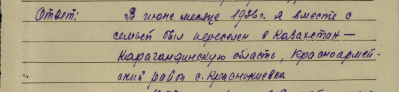 Ответ: В июне месяце 1936 г. я вместе с
семьей был переселен в Казахстан —
Карагандинскую область, Красноармей-
ский район с. Краснокиевка